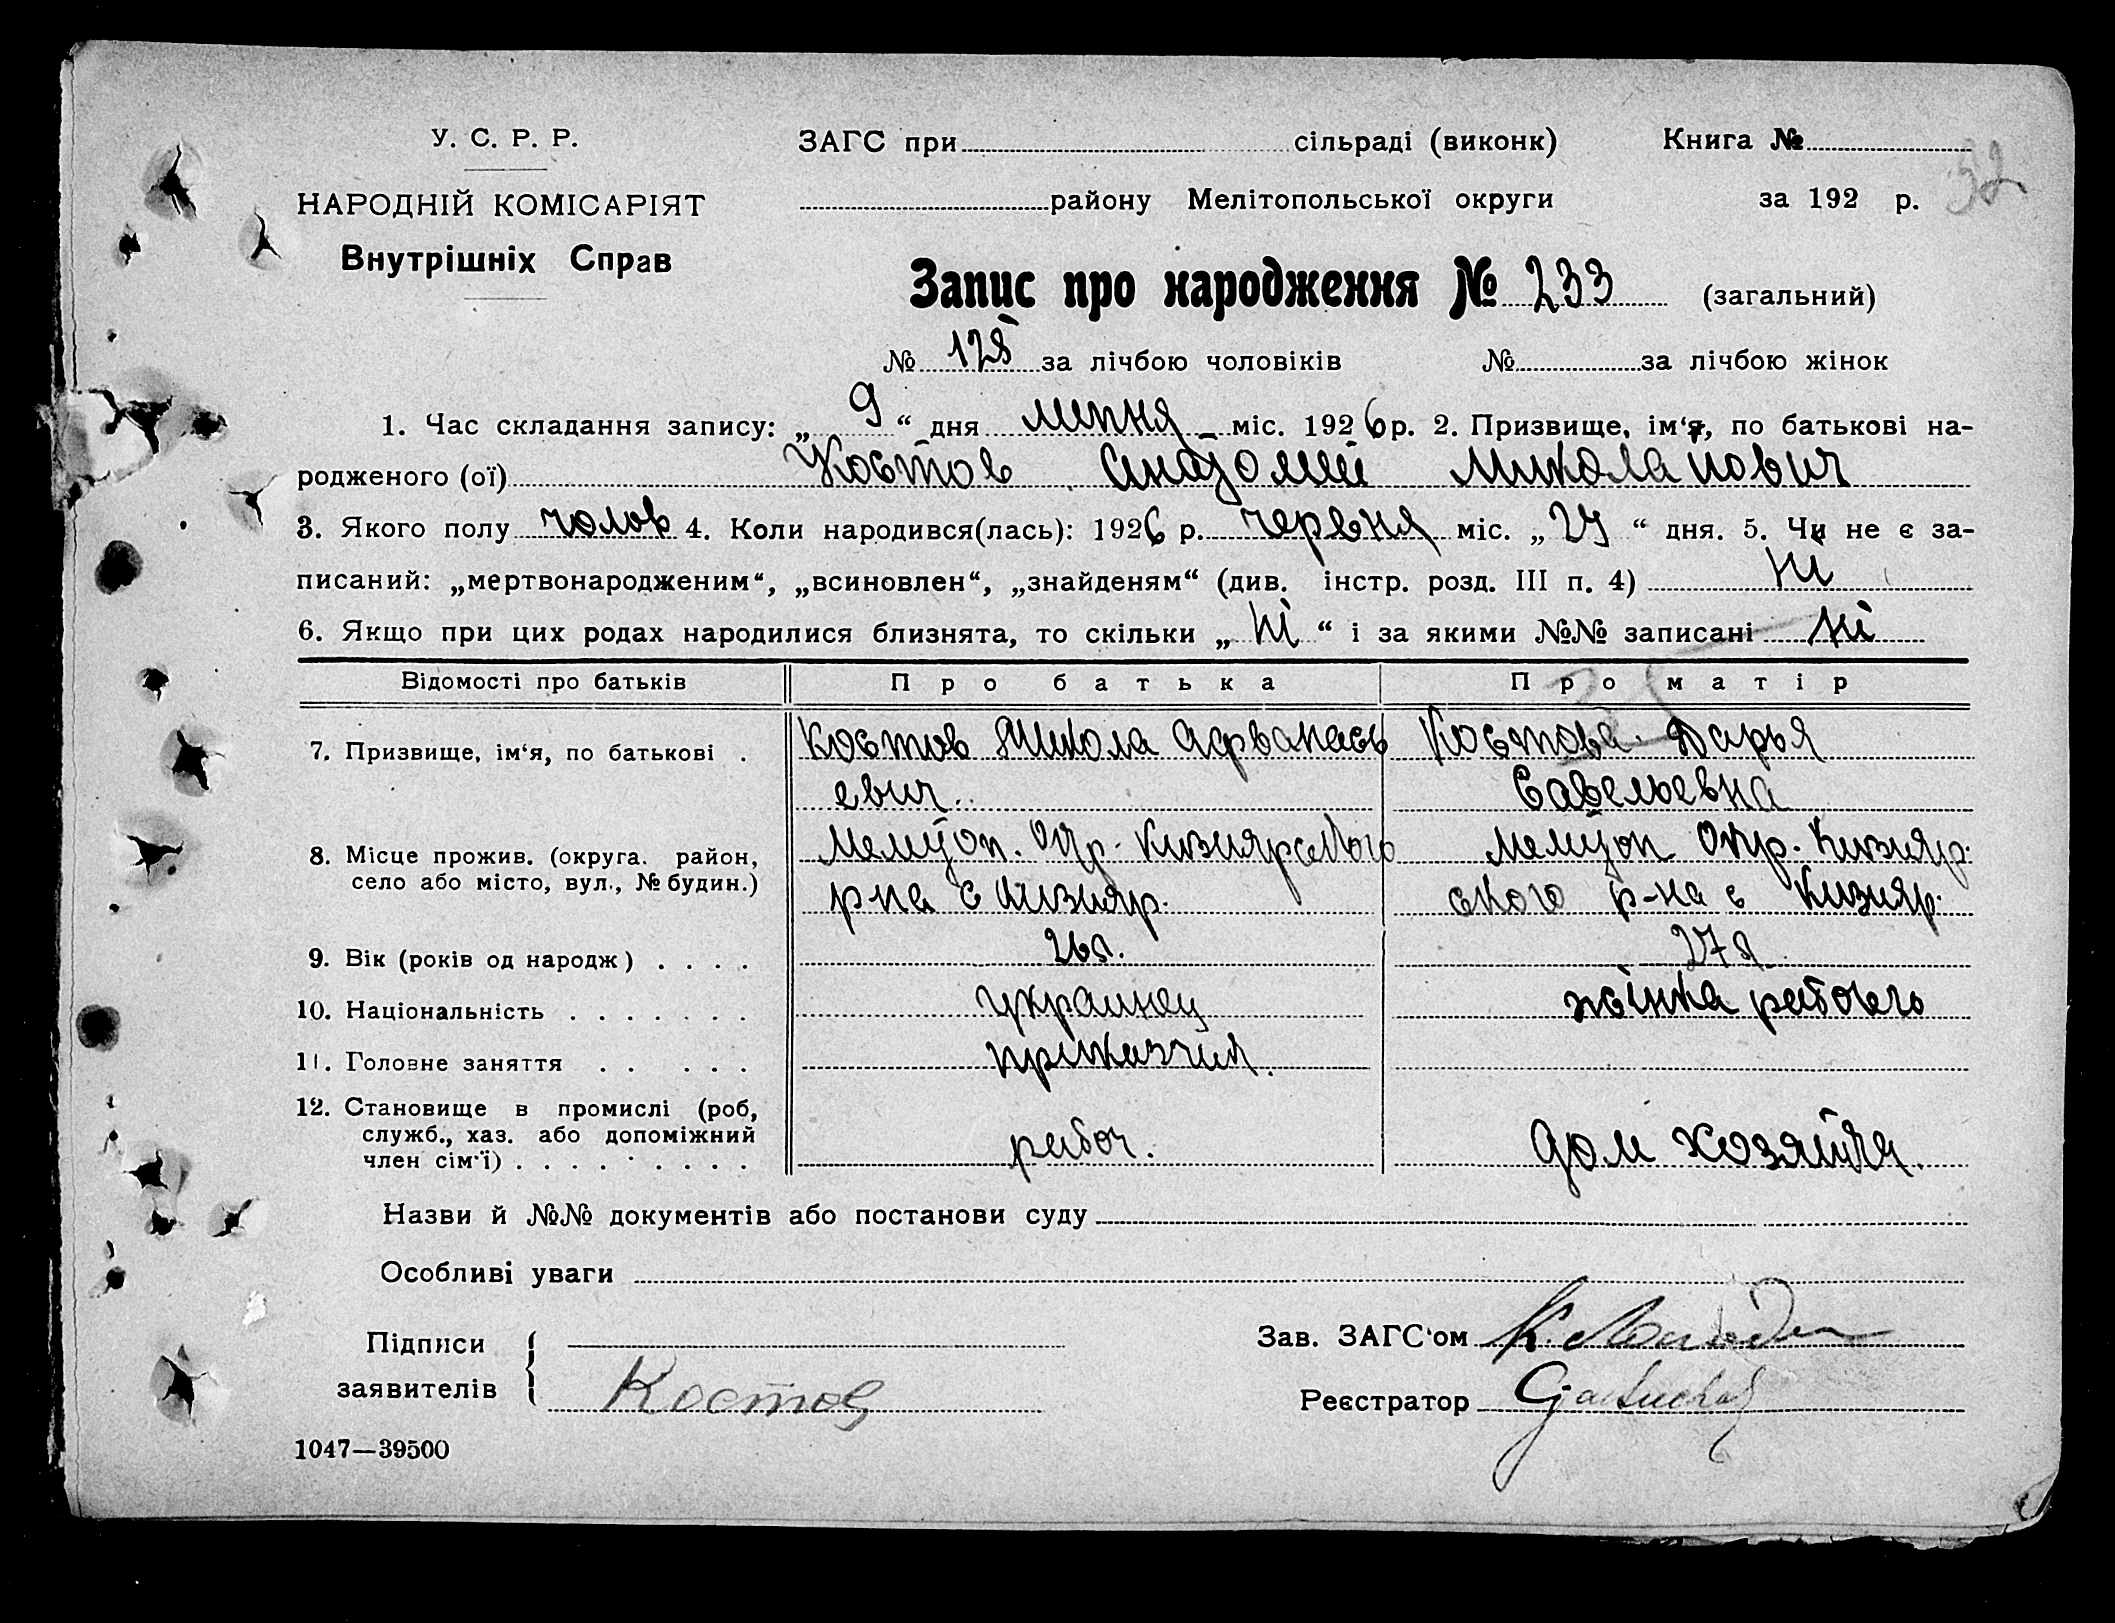 У. С. Р. Р. ЗАГС при сільраді (виконк) Книга №
32
НАРОДНІЙ КОМІСАРІЯТ району Мелітопольської округи за 192 р.
Внутрішніх Справ
Запис про народження № 233 (загальний)
№ 125 за лічбою чоловіків № за лічбою жінок
1. Час складання запису: „9“ дня липня міс. 1926 р. 2. Призвище, ім‘я, по батькові на-
родженого (ої) Костов Миколайович
3. Якого полу чолов 4. Коли народився(лась): 1926 р. червня міс. „27“ дня. 5. Чи не є за-
писаний: „мертвонародженим“, „всиновлен“, „знайденям“ (див. інстр. розд. III п. 4) ні
6. Якщо при цих родах народилися близнята, то скільки „ні“ і за якими №№ записані ні
Відомості про батьків Про батька Про матір
7. Призвище, ім‘я, по батькові . Костов Микола Афванась Костова Дарья
евич. Савельевна
8. Місце прожив. (округа. район, Мелітоп. Окр. Кизиярського Мелітоп Окр. Кизияр.
село або місто, вул., № будин.) р-на с Кизияр. ского р-на с Кизияр.
9. Вік (років од народж) . . . . 26л. 27л
10. Національність . . . . . . . украинец жінка рабочого
11. Головне заняття . . . . . приказчик.
12. Становище в промислі (роб,
служб., хаз. або допоміжний рабоч. дом хозяйка.
член сім‘ї) . . . . . . . . .
Назви й №№ документів або постанови суду
Особливі уваги
Підписи Зав. ЗАГС‘ом
заявителів Костов Реєстратор
1047—39500